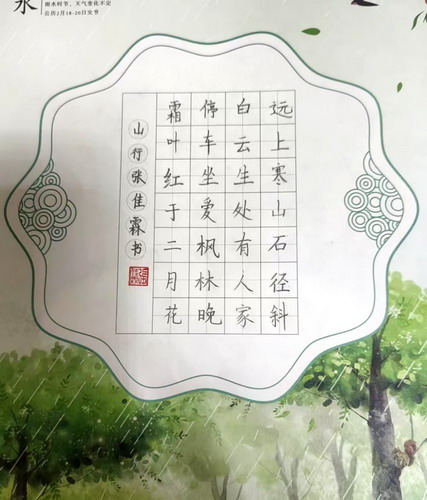 雨水时节，天气变化不定
公历2月18-20日交节
远上寒山石径斜
白云生处有人家
停车坐爱枫林晚
霜叶红于二月花
山行张佳霖书